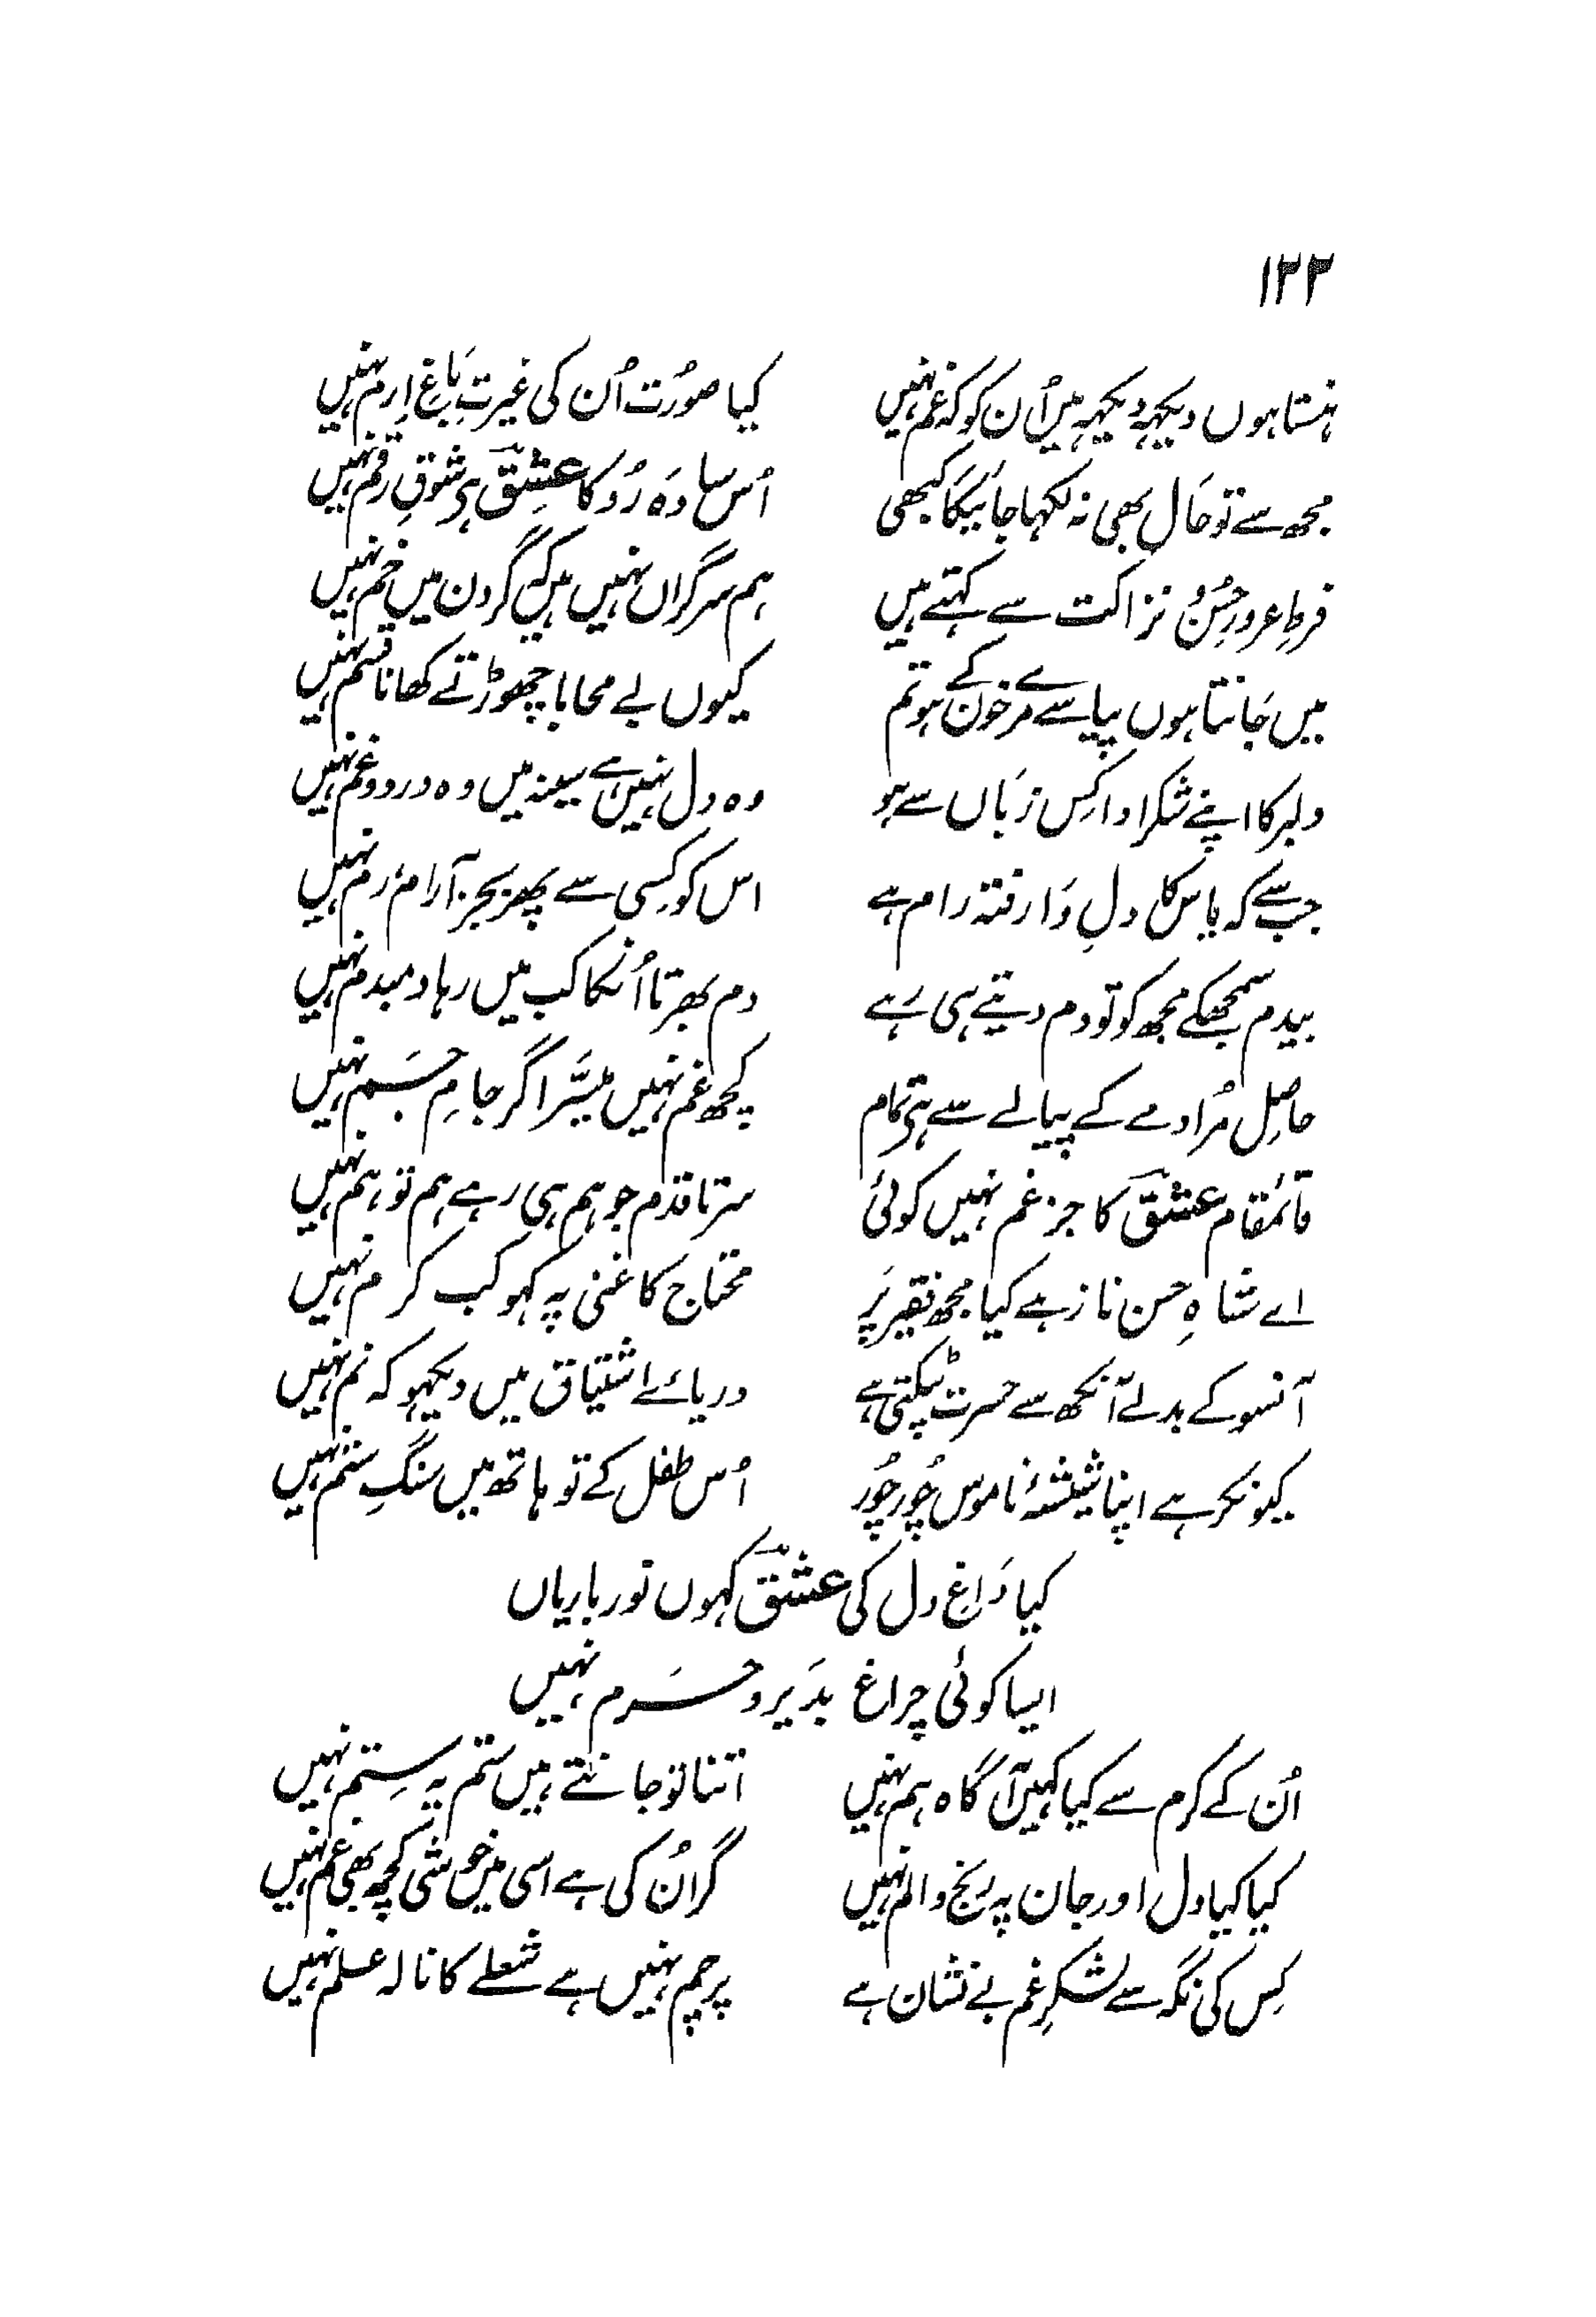 ۱۲۲
ہنستا ہوں دیکہہ دیکہہ میں اُن کو کہ غم نہیں
کیا صورُت اُن کی غیرتِ بَاغِ اِرم نہیں
مجھ سے تو حَال بھی نہ لکہا جائیگا کبھی
اُس سادَہ رُو کا عِشق ہی شوقِ رقم نہیں
فرطِ غرور حُسن و نزاکت سے کہتے ہیں
ہم سرگراں نہیں ہیں کہ گردن میں خم نہیں
میں جَانتا ہوں پیاسے مرے خون کے ہو تم
کیوں بے محابا چھوڑتے کھانا قسم نہیں
دلبر کا اپنے شکر ادا کِس زبَاں سے ہو
وہ دل نہیں ہے سینہ میں وہ درد و غم نہیں
جب سے کہ یاس کا دلِ وَارفتہ رام ہے
اس کو کِسی سے پھر بجز آرام رم نہیں
بیدم سمجھکے مجھ کو تو دم دیتے ہی رہے
دم بھرتا اُنکا کب میں رہا دمبدم نہیں
حاصِل مُراد مے کے پیالے سے ہی تمام
کچھ غم نہیں میسَّر اگر جامِ جَم نہیں
قائمقام عشق کا جز غم نہیں کوئی
سرتا قدم جو ہم ہی رہے ہم تو ہم نہیں
اے شاہِ حسن ناز ہے کیا مجھ فقیر پَر
محتاج کا غنی پہ کہو کب کرم نہیں
آنسو کے بدلے آنکھ سے حسرت ٹپکتی ہے
دریائے اشتیاق میں دیکہو کہ نم نہیں
کیونکر ہے اپنا شیشۂ ناموس چُور چُور
اُس طفل کے تو ہاتھ میں سنگِ ستم نہیں
کیا دَاغِ دل کی عشق کہوں نور باریاں
ایسا کوئی چراغ بدَیر و حَرم نہیں
اُن کے کرم سے کیا کہیں آگاہ ہم نہیں
اتنا تو جانتے ہیں ستم یہ سِتم نہیں
کیا کیا دل اور جان پہ رنج و الم نہیں
گر اُن کی ہے اسی میں خوشی کچھ بھی غم نہیں
کِس کی نگہ سے لشکرِ غم بے نشان ہے
پرچم نہیں ہے شعلے کا نالہ علم نہیں